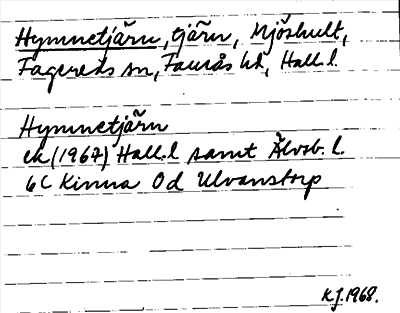 Hymnetjärn, tjärn, Mjöshult,
Fagereds sn, Faurås hd, Hall. l.
Hymnetjärn
ek (1967) Hall. l samt Älvsb. l.
6C Kinna 0d Ulvanstorp
K.J. 1968.